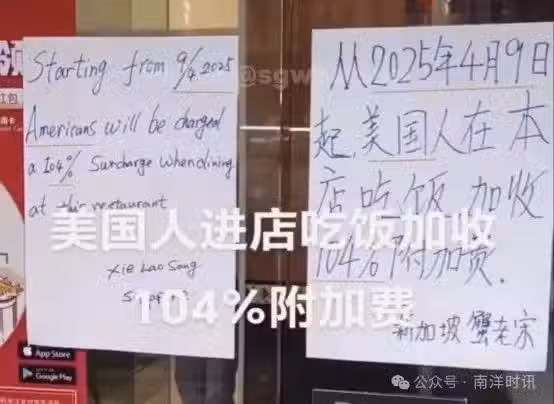 Starting from 9/4 2025
Americans will be charged
a 104% Surcharge when dining
at this restaurant
Xie Lao Song
Singapore
从2025年4月9日
起,美国人在本
店吃饭 加收
104%附加费.
新加坡 蟹老宋
美国人进店吃饭加收
104%附加费
App Store
Google Play
公众号·南洋时讯